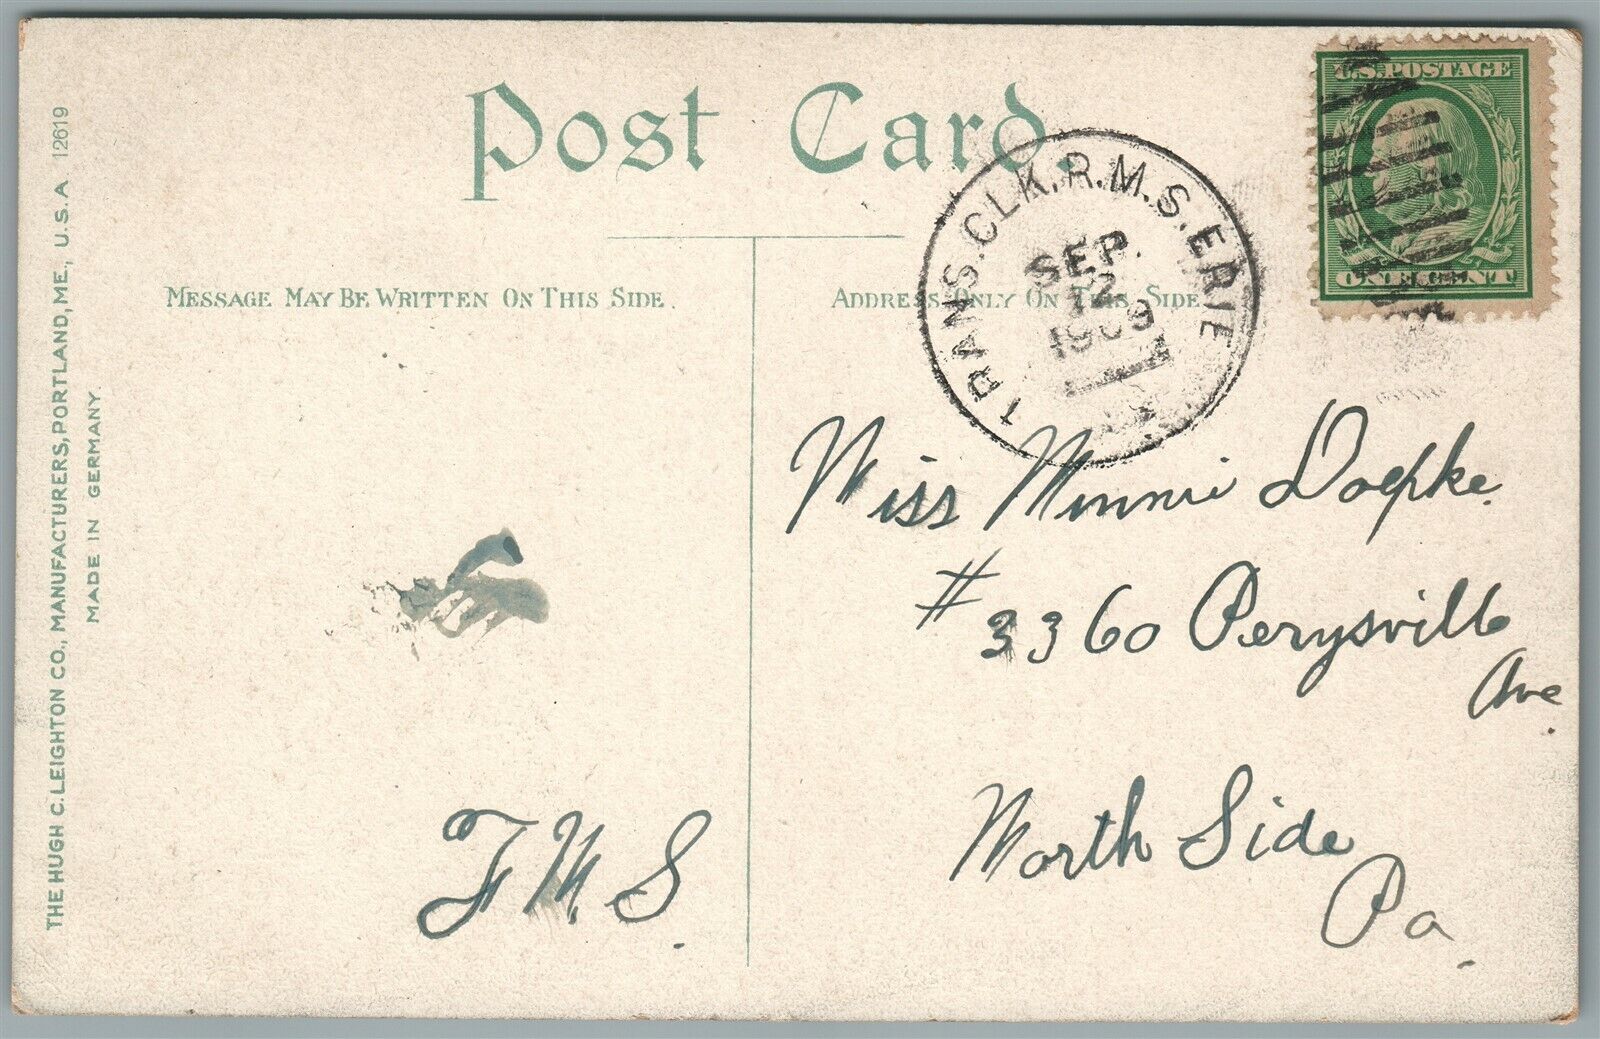 Post Card.
U.S. POSTAGE
ONE CENT
TRANS. CLK. R.M.S. ERIE
SEP.
12
1909
MESSAGE MAY BE WRITTEN ON THIS SIDE.
ADDRESS ONLY ON THIS SIDE
THE HUGH C. LEIGHTON CO., MANUFACTURERS, PORTLAND, ME., U.S.A 12619
MADE IN GERMANY.
Miss Minnie Doepke
# 3360 Perysville
Ave.
North Side
Pa
F M S.